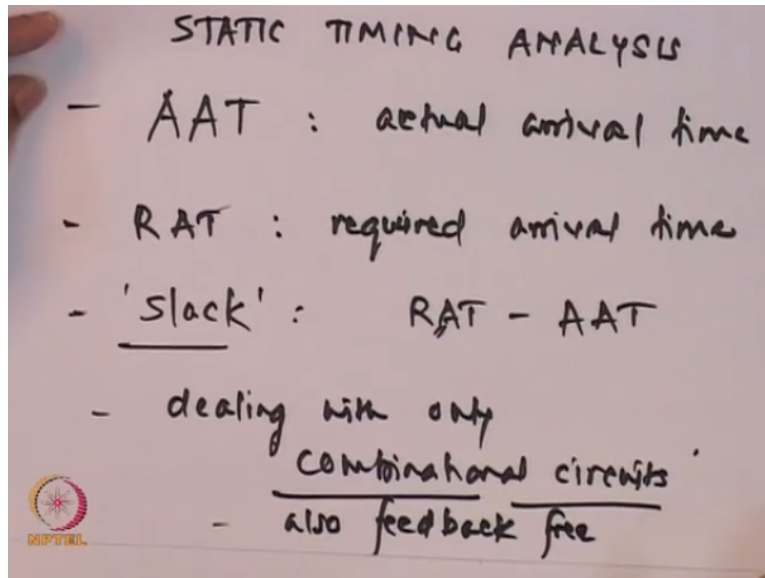 STATIC TIMING ANALYSIS
- AAT : actual arrival time
- RAT : required arrival time
- 'Slack' : RAT - AAT
- dealing with only
combinational circuits
- also feedback free
NPTEL